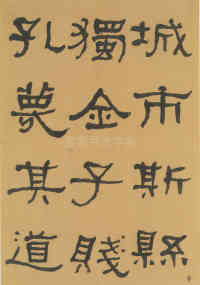 城市斯縣
獨全子賤
孔蔑其道